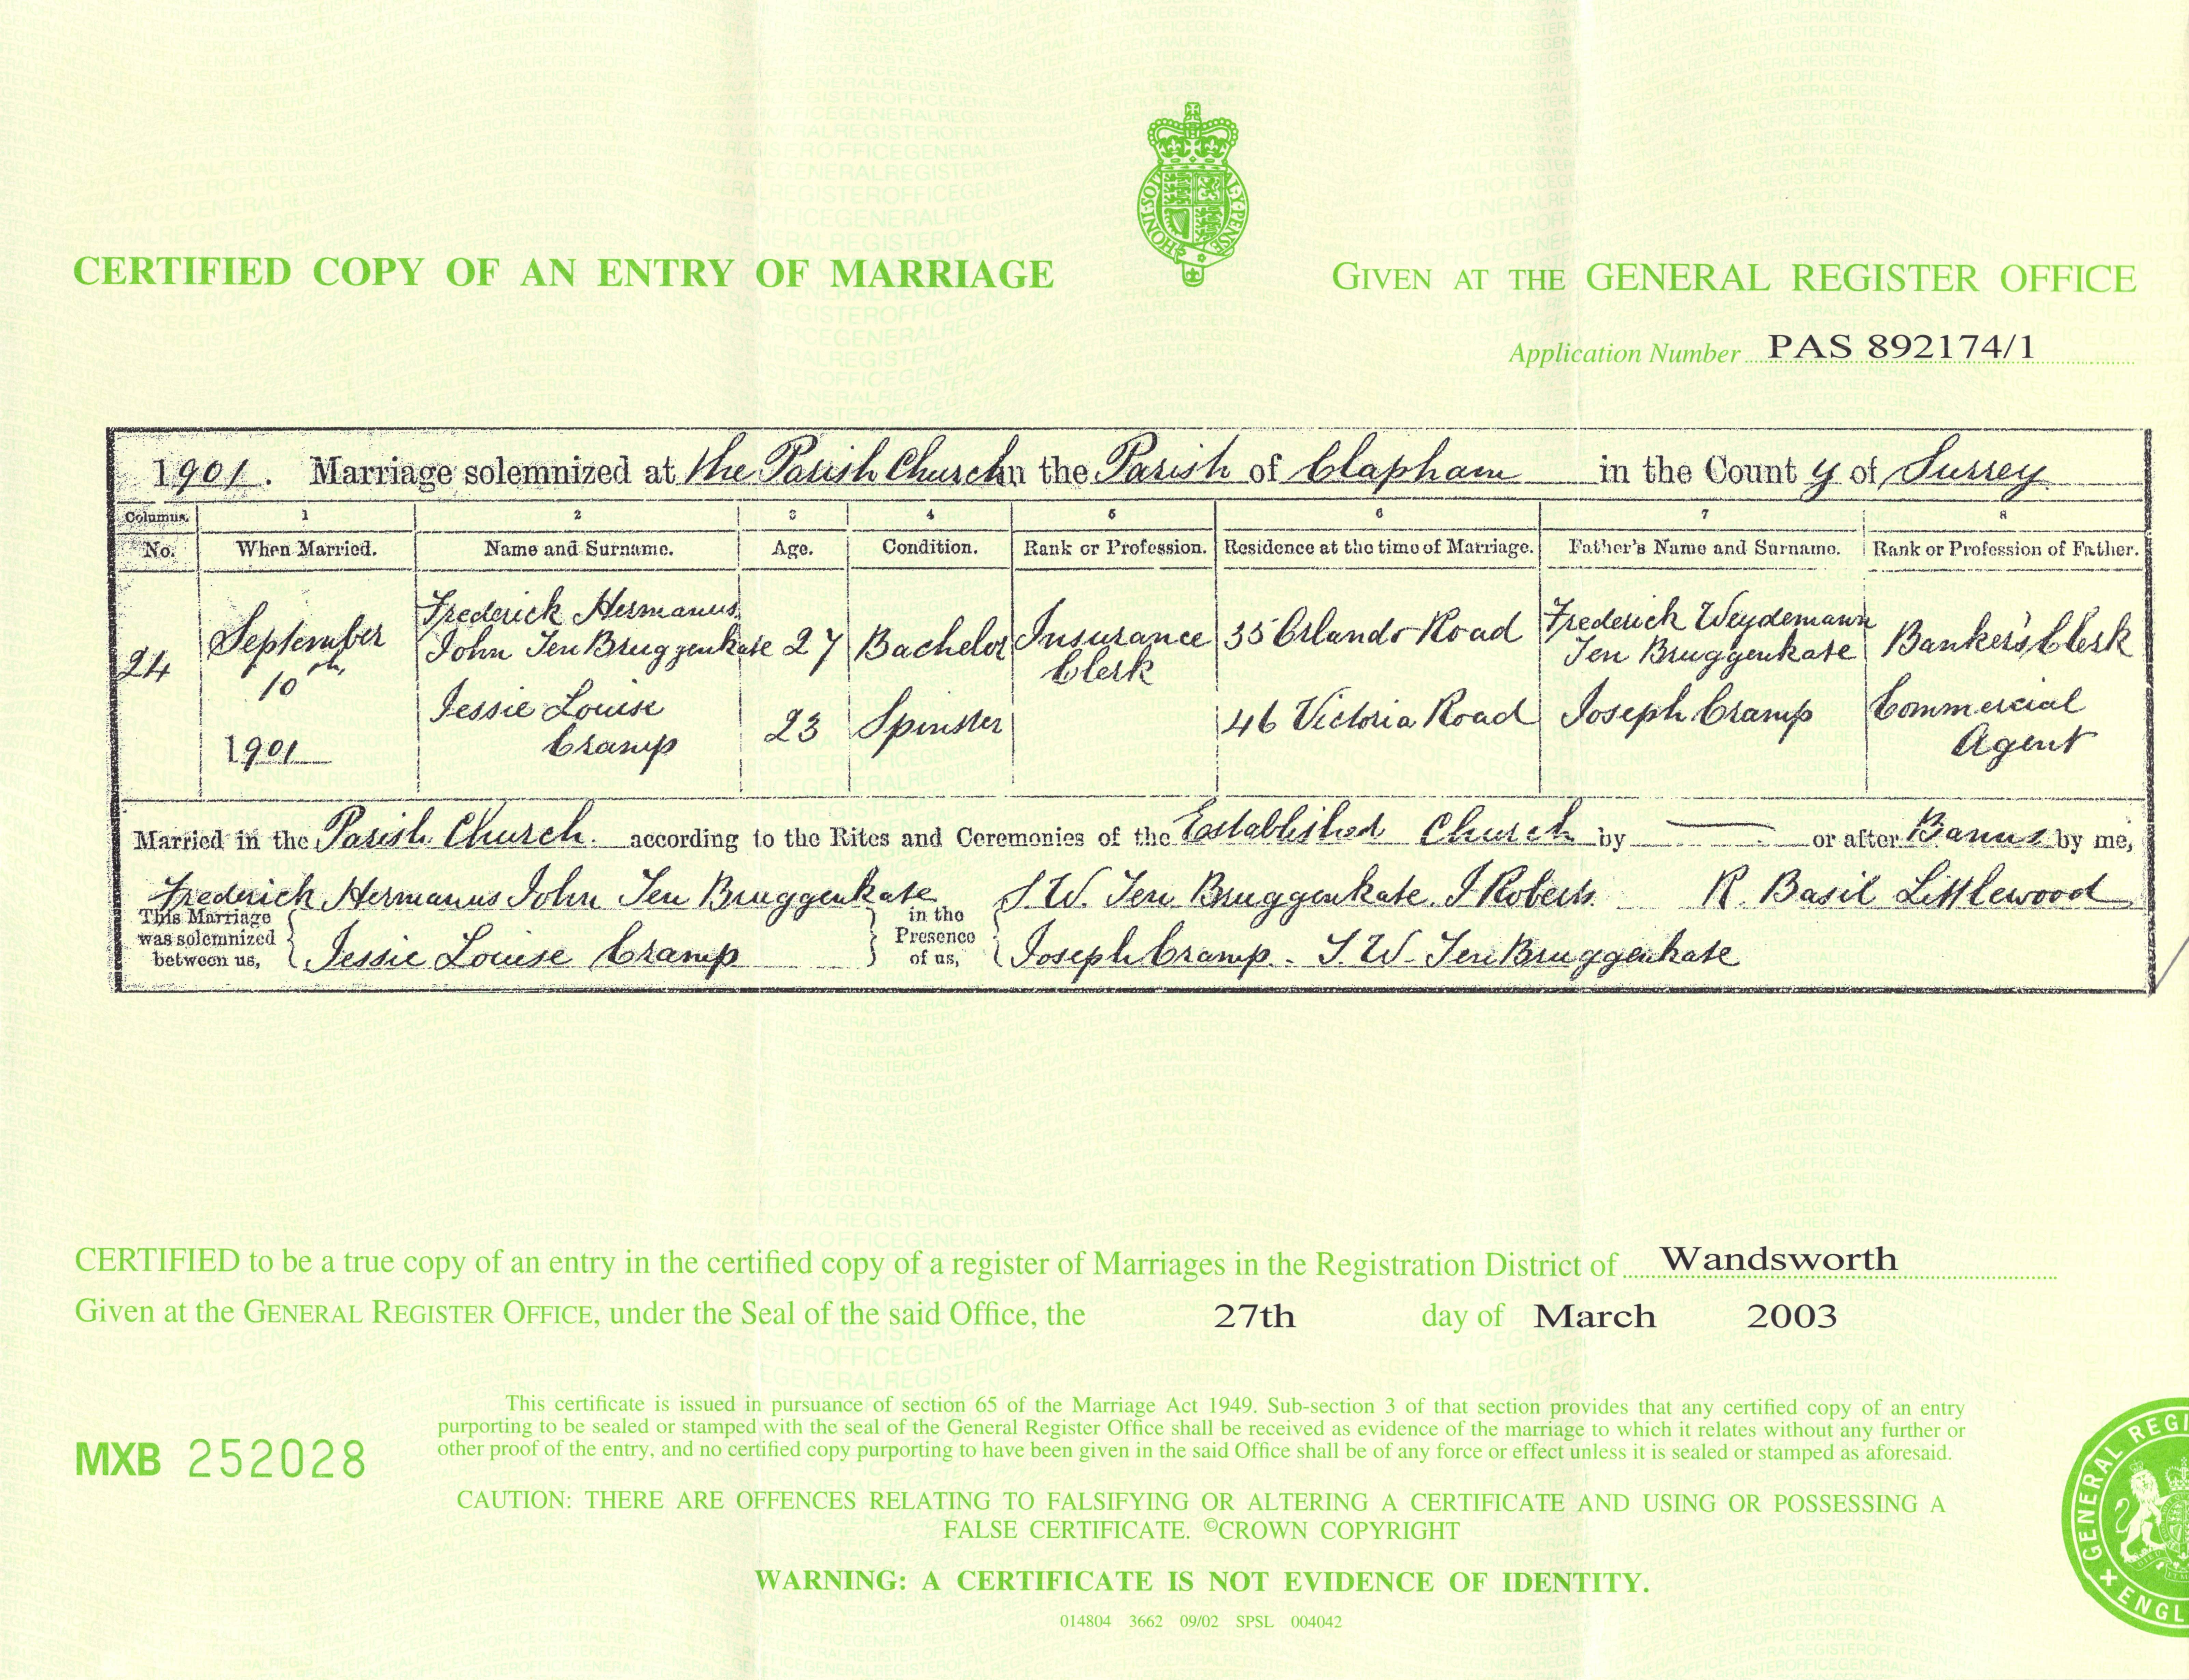 HONI·SOI
AL·Y·PENSE
CERTIFIED COPY OF AN ENTRY OF MARRIAGE
GIVEN AT THE GENERAL REGISTER OFFICE
Application Number PAS 892174/1
1901. Marriage solemnized at the Parish Church in the Parish of Clapham in the County of Surrey
Columns. 1 2 3 4 5 6 7 8
No. When Married. Name and Surname. Age. Condition. Rank or Profession. Residence at the time of Marriage. Father's Name and Surname. Rank or Profession of Father.
24 September 10th 1901 Frederick Hermanus John Ten Bruggenkate 27 Bachelor Insurance Clerk 35 Orlando Road Frederick Weydemann Ten Bruggenkate Banker's Clerk
Jessie Louise Cramp 23 Spinster 46 Victoria Road Joseph Cramp Commercial Agent
Married in the Parish Church. according to the Rites and Ceremonies of the Established Church by — or after Banns by me,
Frederick Hermanus John Ten Bruggenkate W. Ten Bruggenkate. J Roberts. R. Basil Littlewood
This Marriage was solemnized between us, Jessie Louise Cramp in the Presence of us, Joseph Cramp - W. Ten Bruggenkate
CERTIFIED to be a true copy of an entry in the certified copy of a register of Marriages in the Registration District of Wandsworth
Given at the GENERAL REGISTER OFFICE, under the Seal of the said Office, the 27th day of March 2003
This certificate is issued in pursuance of section 65 of the Marriage Act 1949. Sub-section 3 of that section provides that any certified copy of an entry
purporting to be sealed or stamped with the seal of the General Register Office shall be received as evidence of the marriage to which it relates without any further or
other proof of the entry, and no certified copy purporting to have been given in the said Office shall be of any force or effect unless it is sealed or stamped as aforesaid.
MXB 252028
CAUTION: THERE ARE OFFENCES RELATING TO FALSIFYING OR ALTERING A CERTIFICATE AND USING OR POSSESSING A
FALSE CERTIFICATE. ©CROWN COPYRIGHT
WARNING: A CERTIFICATE IS NOT EVIDENCE OF IDENTITY.
014804 3662 09/02 SPSL 004042
GENERAL REGI
ENGL